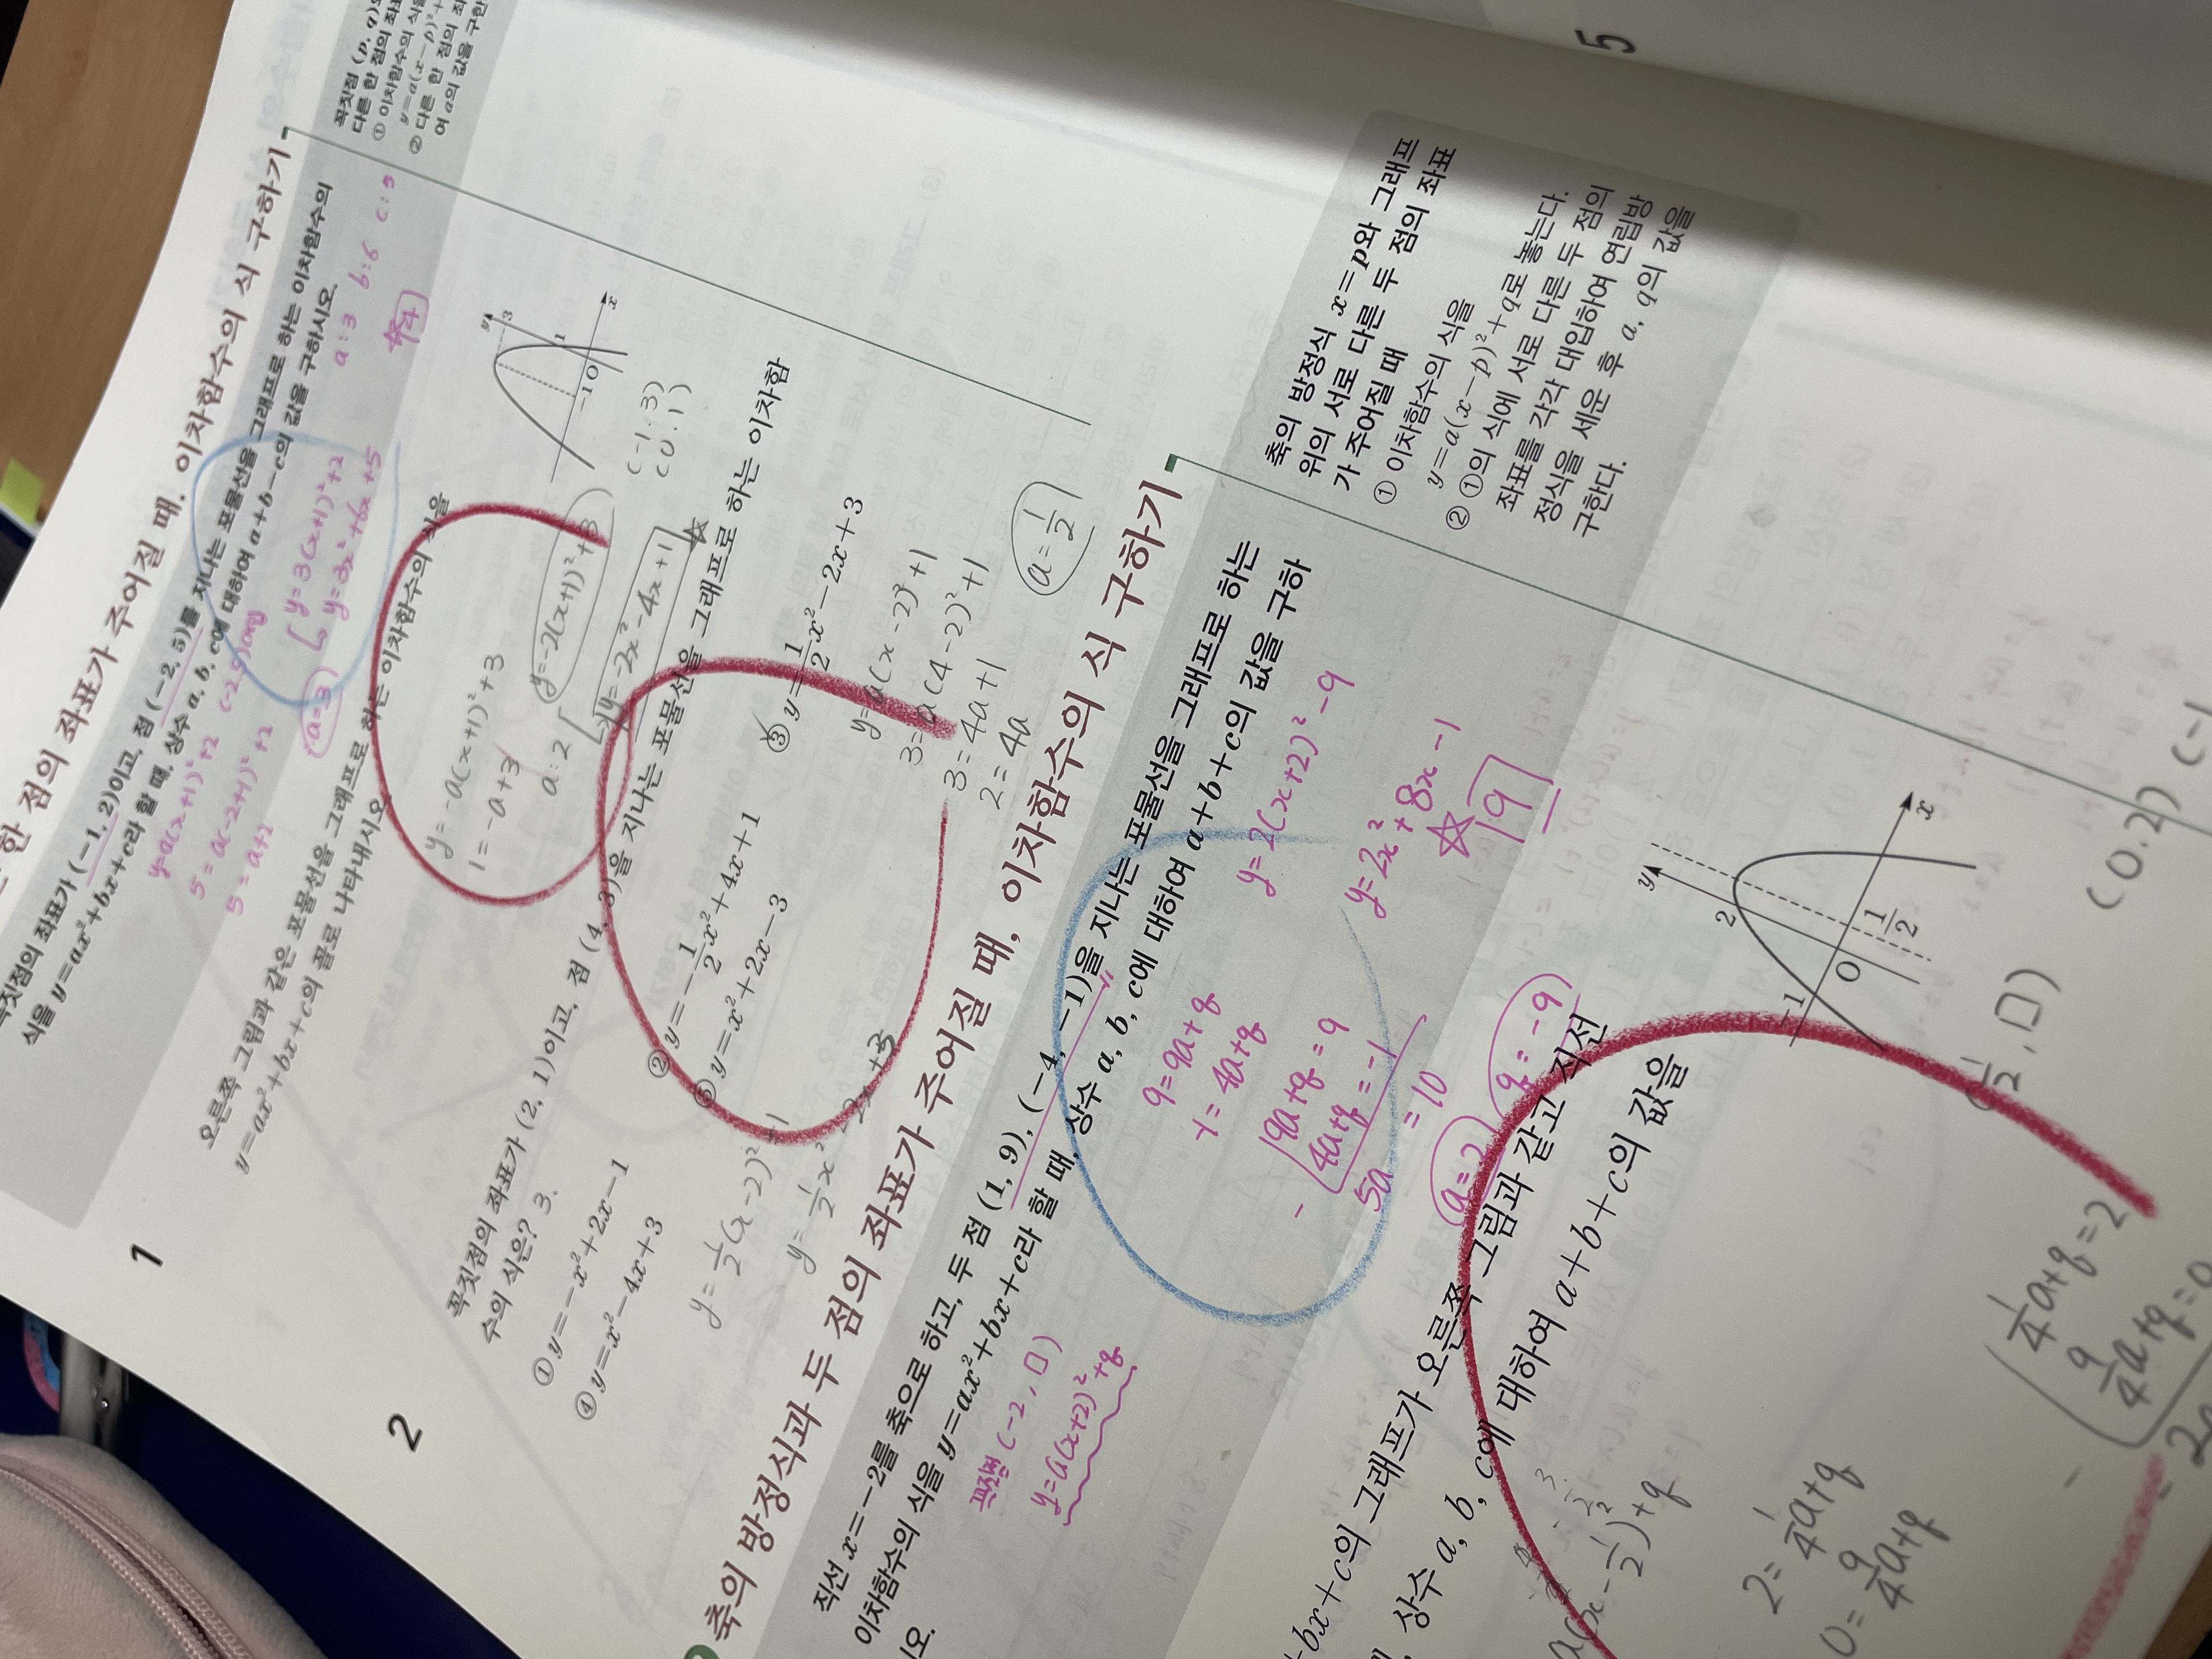 한 점의 좌표가 주어질 때, 이차함수의 식 구하기
꼭짓점의 좌표가 (-1, 2)이고, 점 (-2, 5)를 지나는 포물선을 그래프로 하는 이차함수의
식을 y=ax²+bx+c라 할 때, 상수 a, b, c에 대하여 a+b-c의 값을 구하시오.
y=a(x+1)²+2 (-2,5)
5=a(-2+1)²+2
5=a+2
a=3
y=3(x+1)²+2
y=3x²+6x+5
a:3 b:6 c:5
4
꼭짓점 (p, q)
다른 한 점의 좌표
① 이차함수의 식
y=a(x-p)²+
② 다른 한 점의 좌
여 a의 값을 구한
1
오른쪽 그림과 같은 포물선을 그래프로 하는 이차함수의 식을
y=ax²+bx+c의 꼴로 나타내시오.
y=-a(x+1)²+3
1=-a+3
a:2
y=-2(x+1)²+3
y=-2x²-4x+1
(-1.3)
(0.1)
y
3
1
-1 O
x
2
꼭짓점의 좌표가 (2, 1)이고, 점 (4, 3)을 지나는 포물선을 그래프로 하는 이차함
수의 식은? 3.
① y=-x²+2x-1
② y=-1/2x²+4x+1
③ y=1/2x²-2x+3
④ y=x²-4x+3
⑤ y=x²+2x-3
y=1/2(x-2)²+1
y=1/2x²-2x+3
y=a(x-2)²+1
3=a(4-2)²+1
3=4a+1
2=4a
a=1/2
축의 방정식과 두 점의 좌표가 주어질 때, 이차함수의 식 구하기
직선 x=-2를 축으로 하고, 두 점 (1, 9), (-4, -1)을 지나는 포물선을 그래프로 하는
이차함수의 식을 y=ax²+bx+c라 할 때, 상수 a, b, c에 대하여 a+b+c의 값을 구하
시오.
꼭짓점 (-2, □)
y=a(x+2)²+q
9=9a+q
-1=4a+q
9a+q=9
- 4a+q=-1
5a =10
a=2
q=-9
y=2(x+2)²-9
y=2x²+8x-1
9
축의 방정식 x=p와 그래프
위의 서로 다른 두 점의 좌표
가 주어질 때
① 이차함수의 식을
y=a(x-p)²+q로 놓는다.
② ①의 식에 서로 다른 두 점의
좌표를 각각 대입하여 연립방
정식을 세운 후 a, q의 값을
구한다.
+bx+c의 그래프가 오른쪽 그림과 같고 직선
상수 a, b, c에 대하여 a+b+c의 값을
y
2
-1
O
1/2
x
a(x-1/2)²+q
2=1/4a+q
0=9/4a+q
1/4a+q=2
- 9/4a+q=0
(1/2, □)
(0.2) (-1
5